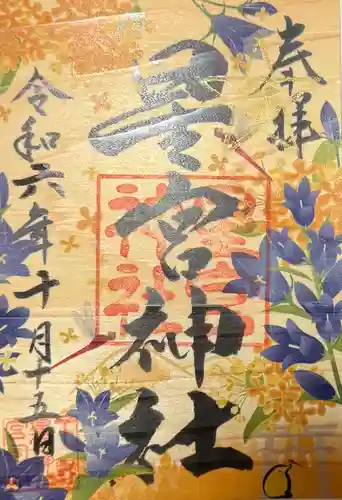 奉拝
星宮神社
令和六年十月十五日